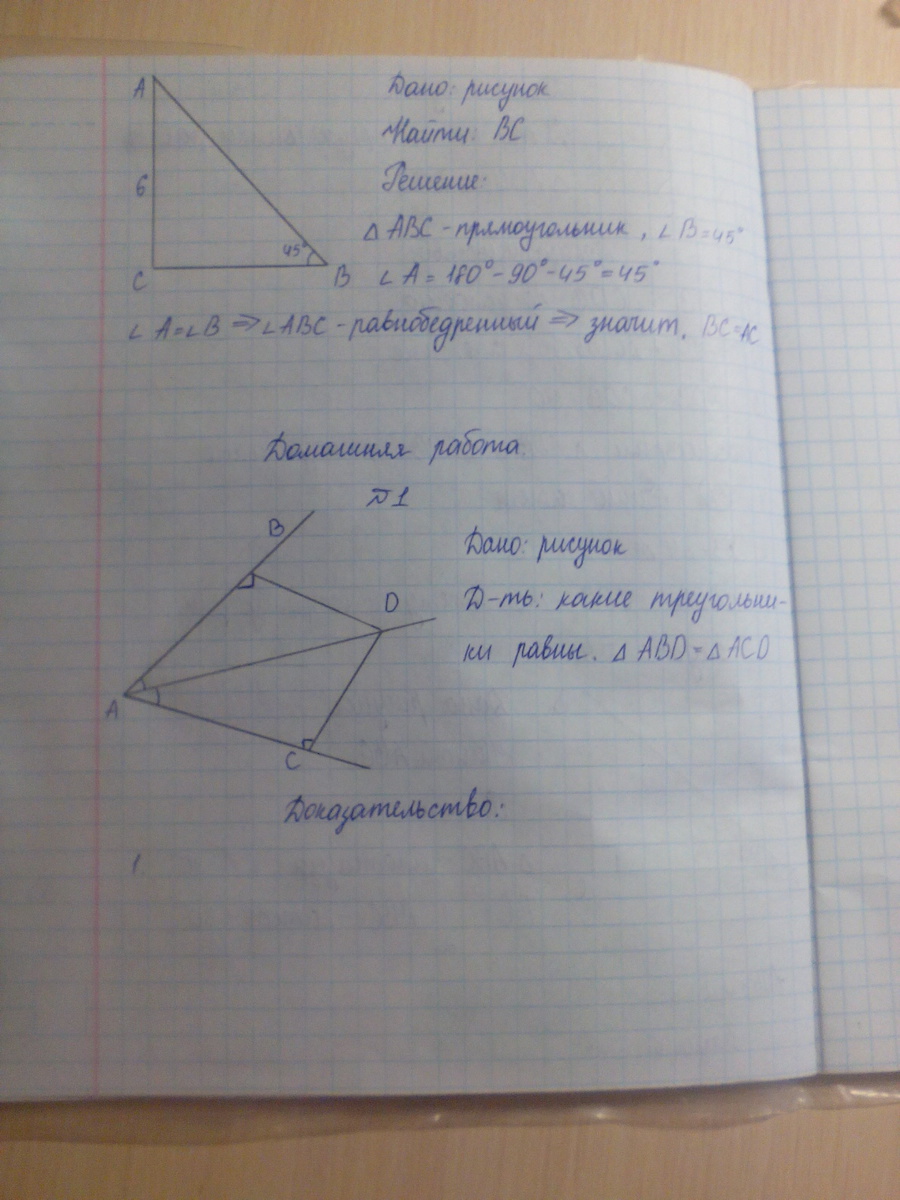 A
Дано: рисунок
Найти: BC
6
Решение:
△ ABC - прямоугольник, ∠B=45°
45°
C
B
∠A = 180°-90°-45°=45°
∠A=∠B => ∠ABC - равнобедренный => значит, BC=AC
Домашняя работа.
B
Дано: рисунок
D
Д-ть: какие треугольни-
ки равны. △ ABD = △ ACD
A
C
Доказательство:
1.